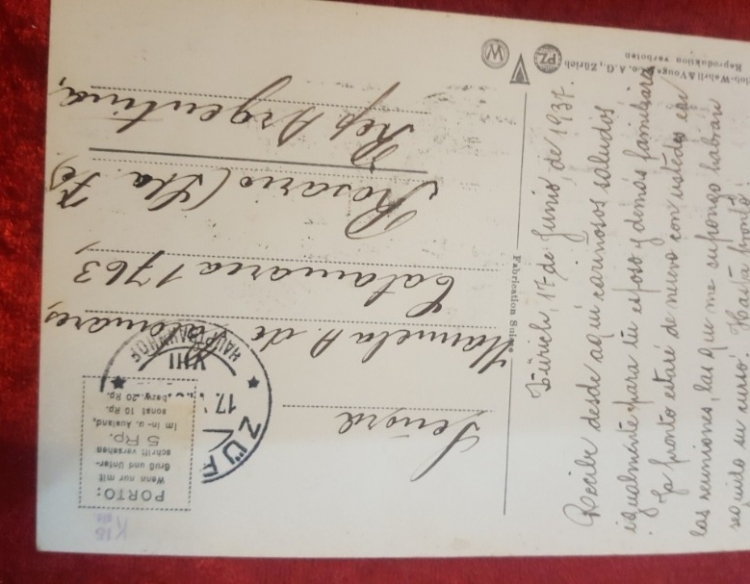 Zürich, 17 de Junio, de 1937.
Recibe desde aquí cariñosos saludos
igualmente para tu esposo y demás familiares
Ya pronto estaré de nuevo con ustedes en
las reuniones, las que me supongo habrán
seguido su curso. Hasta pronto
Señora
Manuela A. de
Catamarca 1763,
Rosario (Sta. Fe)
Rep. Argentina,
Wehrli & Vouga & Co. A.G., Zürich
Reproduktion verboten
Fabrication Suisse
W
PZ
PORTO:
Wenn nur mit
Gruß und Unter-
schrift versehen
5 Rp.
im In- u. Ausland,
sonst 10 Rp.
bezw. 20 Rp.
17.
VIII
HAUPTBAHNHOF
K15